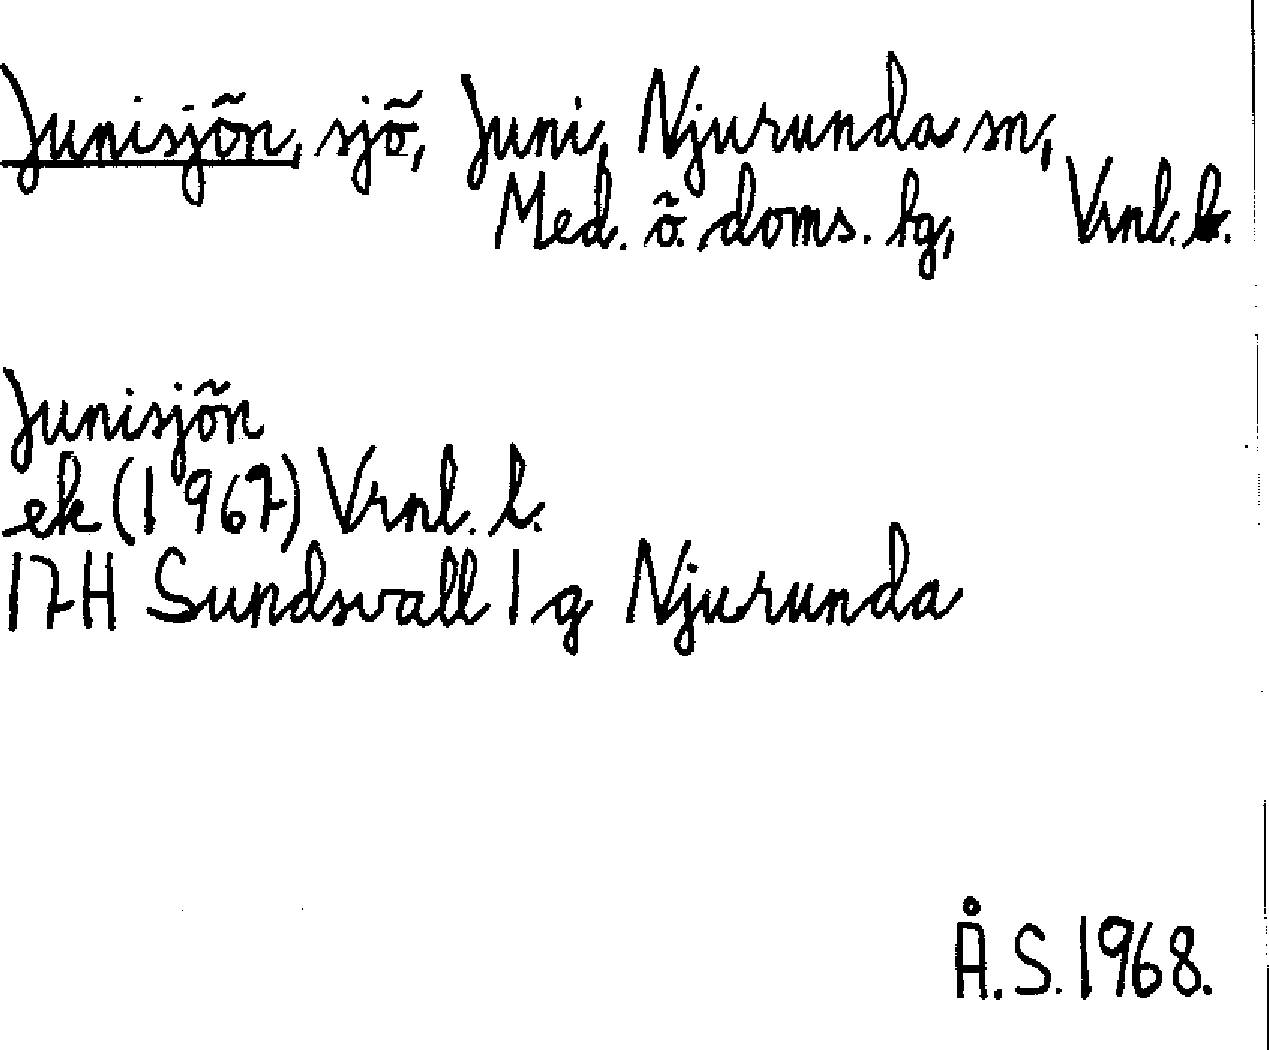 Junisjön, sjö, Juni, Njurunda sn,
Med. ö. doms. tg, Vrnl. l.
Junisjön
ek (1967) Vrnl. l.
17H Sundsvall 1 g Njurunda
Å.S. 1968.